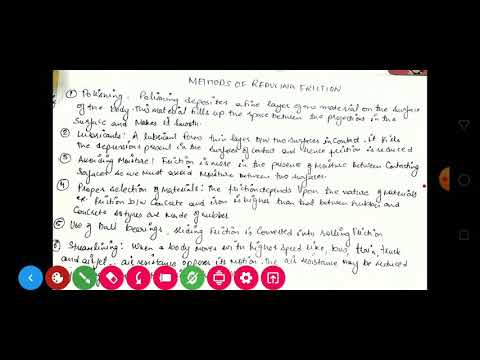 METHODS OF REDUCING FRICTION
① Polishing: Polishing deposites a fine layer of the material on the surface
of the body. This material fills up the space between the projection in the
surface and makes it smooth.
② Lubricants: A lubricant forms thin layer b/w two surfaces in contact. It fills
the depressions present in the surfaces of contact and hence friction is reduced
③ Avoiding Moisture: Friction is more in the presence of Moisture between Contacting
Surfaces so we must avoid Moisture between two surfaces.
④ Proper selection of Materials: The friction depends upon the nature of Materials
ex: Friction b/w Concrete and iron is higher than that between rubber and
Concrete so tyres are made of rubber.
⑤ Use of Ball Bearings, sliding friction is converted into rolling friction
Streamlining: When a body moves with highest speed like, bus, train, truck
and air resistance opposes its motion. The air resistance may be reduced